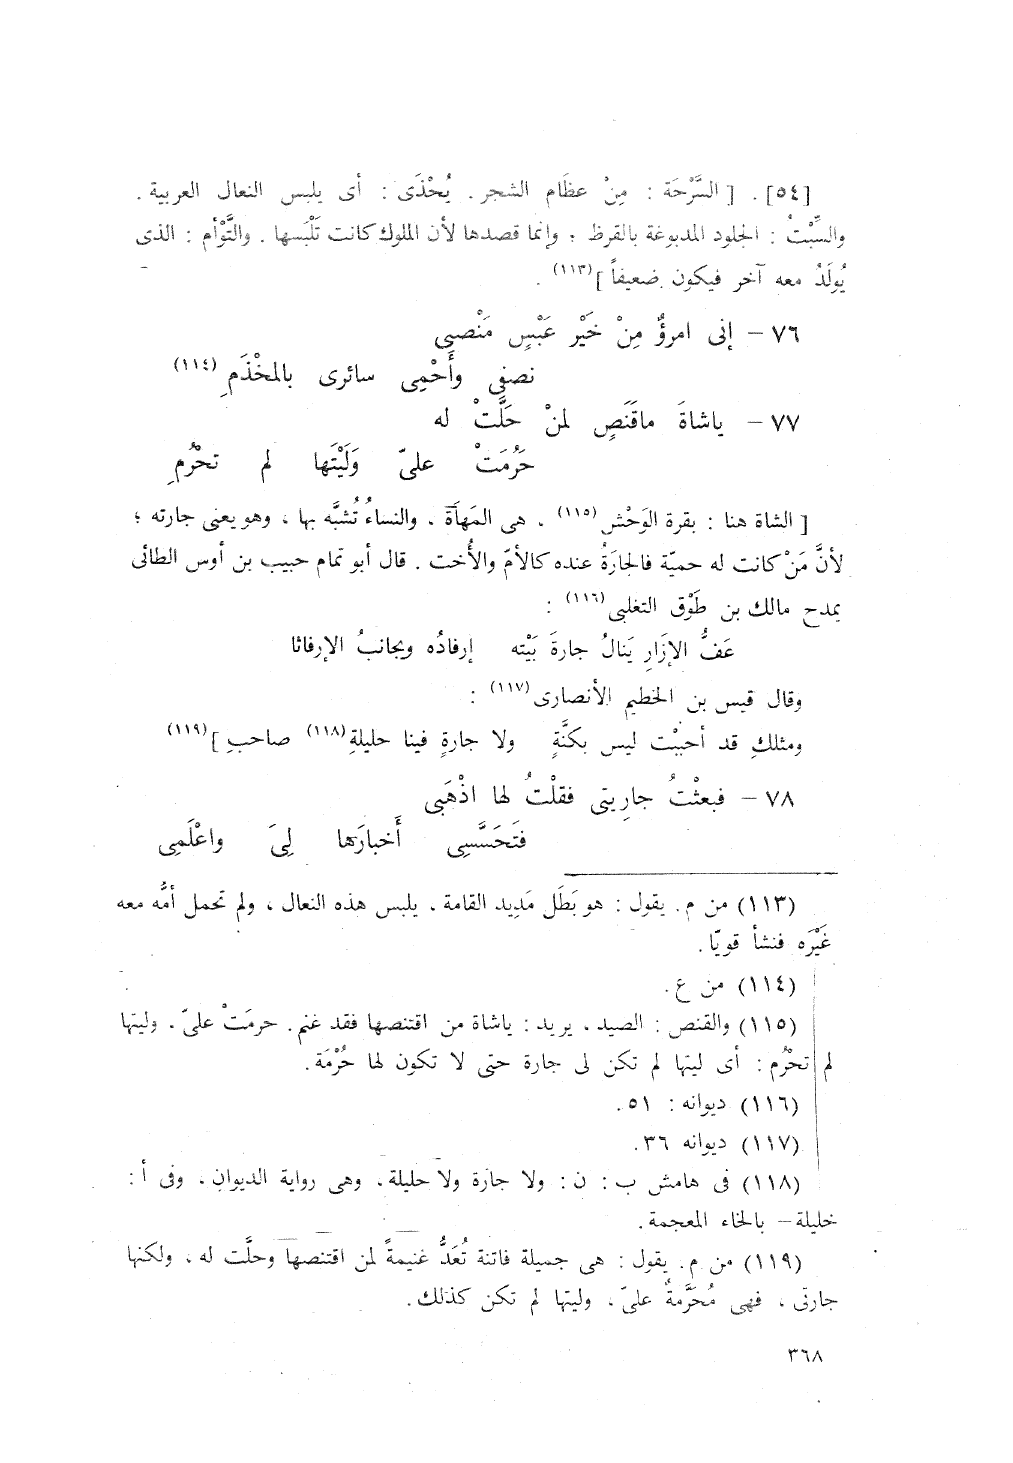 [٥٤] . [ السَّرْحَة : مِنْ عظَام الشجر . يُحْذَى : أى يلبس النعال العربية .
والسِّبْتْ : الجلود المدبوغة بالقرظ ؛ وإنما قصدها لأن الملوك كانت تَلْبَسها . والتَّوْأم : الذى
يُولَدُ معه آخر فيكون ضعيفاً ](١١٣) .
٧٦ – إنى امرؤٌ مِنْ خَيْر عَبْسٍ مَنْصبى
نصفى وأَحْمِى سائرى بالمخْذَمِ (١١٤)
٧٧ – ياشاةَ ماقَنَصٍ لمنْ حَلَّتْ له
حَرُمَتْ علىّ وَلَيْتَها لم تحْرُمِ
[ الشاة هنا : بقرة الوَحْش (١١٥) ، هى المَهاَة ، والنساءُ تُشبَّه بها ، وهو يعنى جارته ؛
لأنَّ مَنْ كانت له حميّة فالجارَةُ عنده كالأمّ والأُخت . قال أبو تمام حبيب بن أوس الطائى
يمدح مالك بن طَوْق التغلبى (١١٦) :
عَفُّ الإزَارِ يَنالُ جارةَ بَيْته إرفادُه ويجانبُ الإرفاثا
وقال قيس بن الخطيم الأنصارى (١١٧) :
ومثلكِ قد أحببْت ليس بكنَّةٍ ولا جارةٍ فينا حليلةِ (١١٨) صاحبِ ] (١١٩)
٧٨ – فبعثْتُ جارِيتى فقلْتُ لها اذْهَبى
فَتَحَسَّسِى أَخبارَها لِىَ واعْلَمِى
(١١٣) من م . يقول : هو بَطَل مَدِيد القامة ، يلبس هذه النعال ، ولم تحمل أمُّه معه
غَيْرَه فنشأ قويّا .
(١١٤) من ع .
(١١٥) والقنص : الصيد ، يريد : ياشاة من اقتنصها فقد غنم . حرمَتْ علىّ ، وليتها
لم تحْرُم : أى ليتها لم تكن لى جارة حتى لا تكون لها حُرْمَة .
(١١٦) ديوانه : ٥١ .
(١١٧) ديوانه ٣٦ .
(١١٨) فى هامش ب : ن : ولا جارة ولا حليلة ، وهى رواية الديوان ، وفى أ :
خليلة – بالخاء المعجمة .
(١١٩) من م . يقول : هى جميلة فاتنة تُعَدُّ غنيمةً لمن اقتنصها وحلَّت له ، ولكنها
جارتى ، فهى مُحَرَّمةٌ علىّ ، وليتها لم تكن كذلك .
٣٦٨